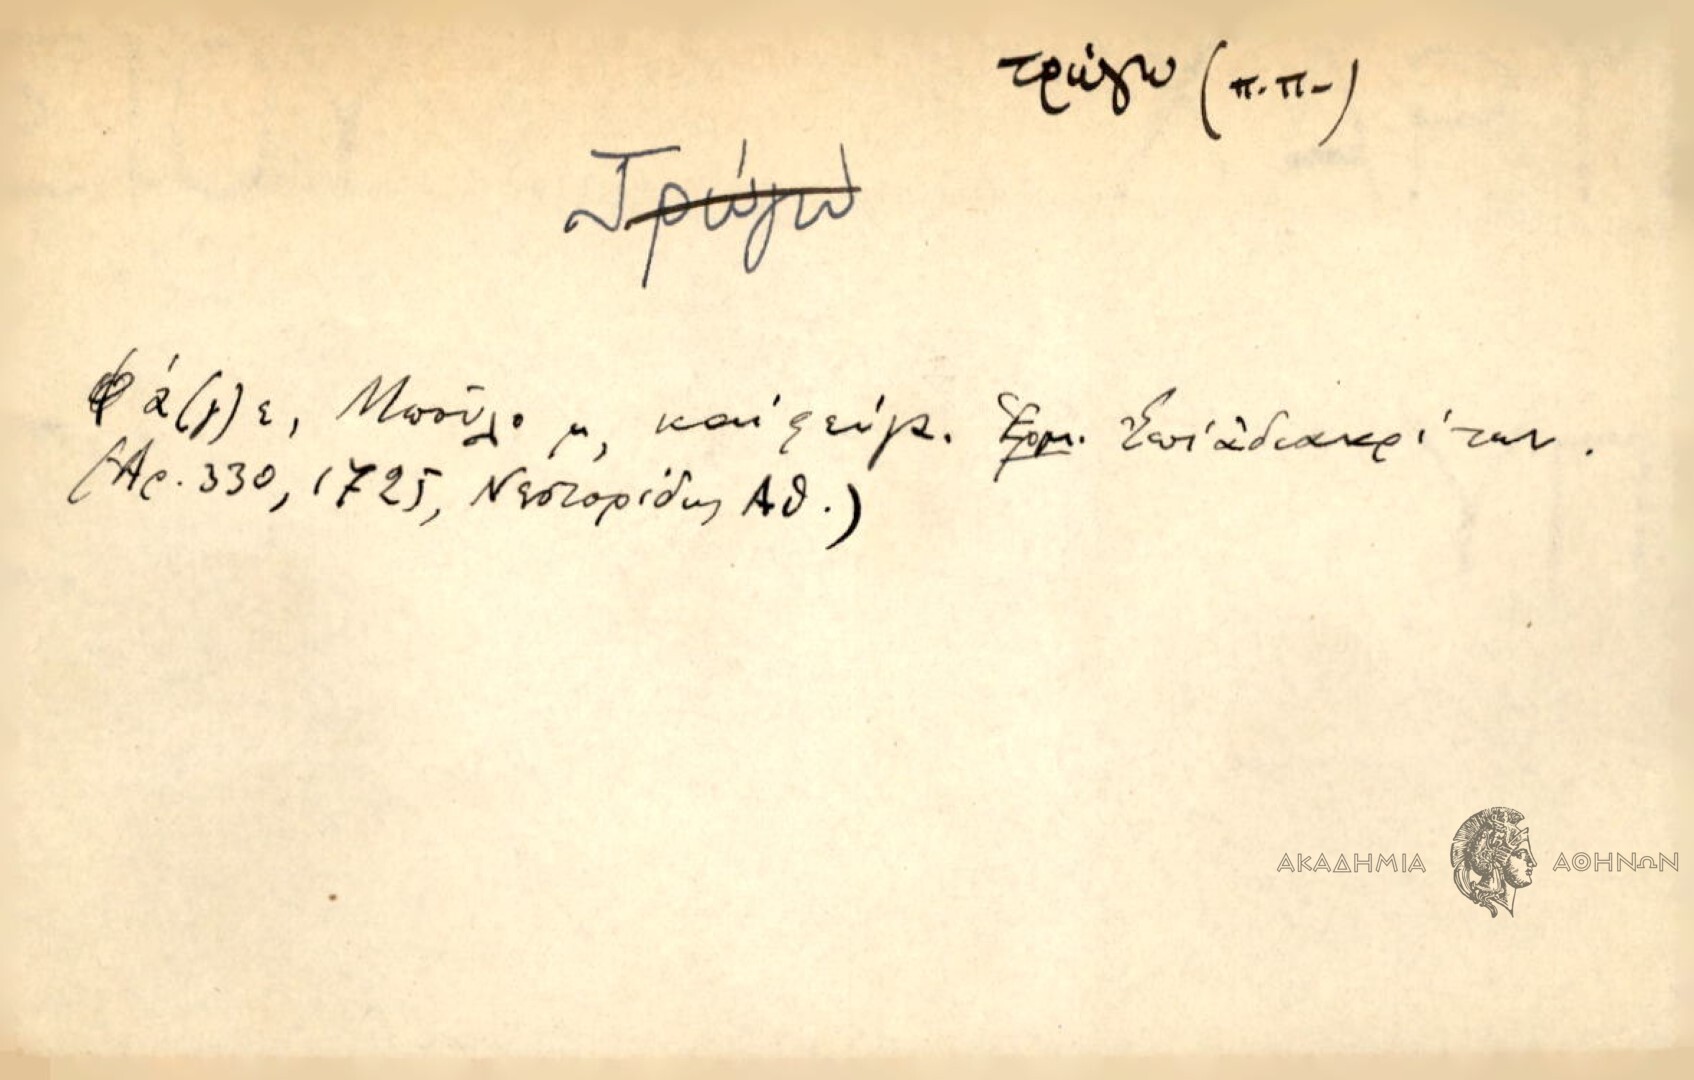 τρώγω (π.π-)
Τρώγω
Φά(γ)ε, Μπούλο μ, καὶ φεύγα. Ἑρμ. Ἐπὶ ἀδιακρίτων.
(Αρ. 330, 1725, Νεστορίδης Αθ.)
ΑΚΑΔΗΜΙΑ ΑΘΗΝΩΝ